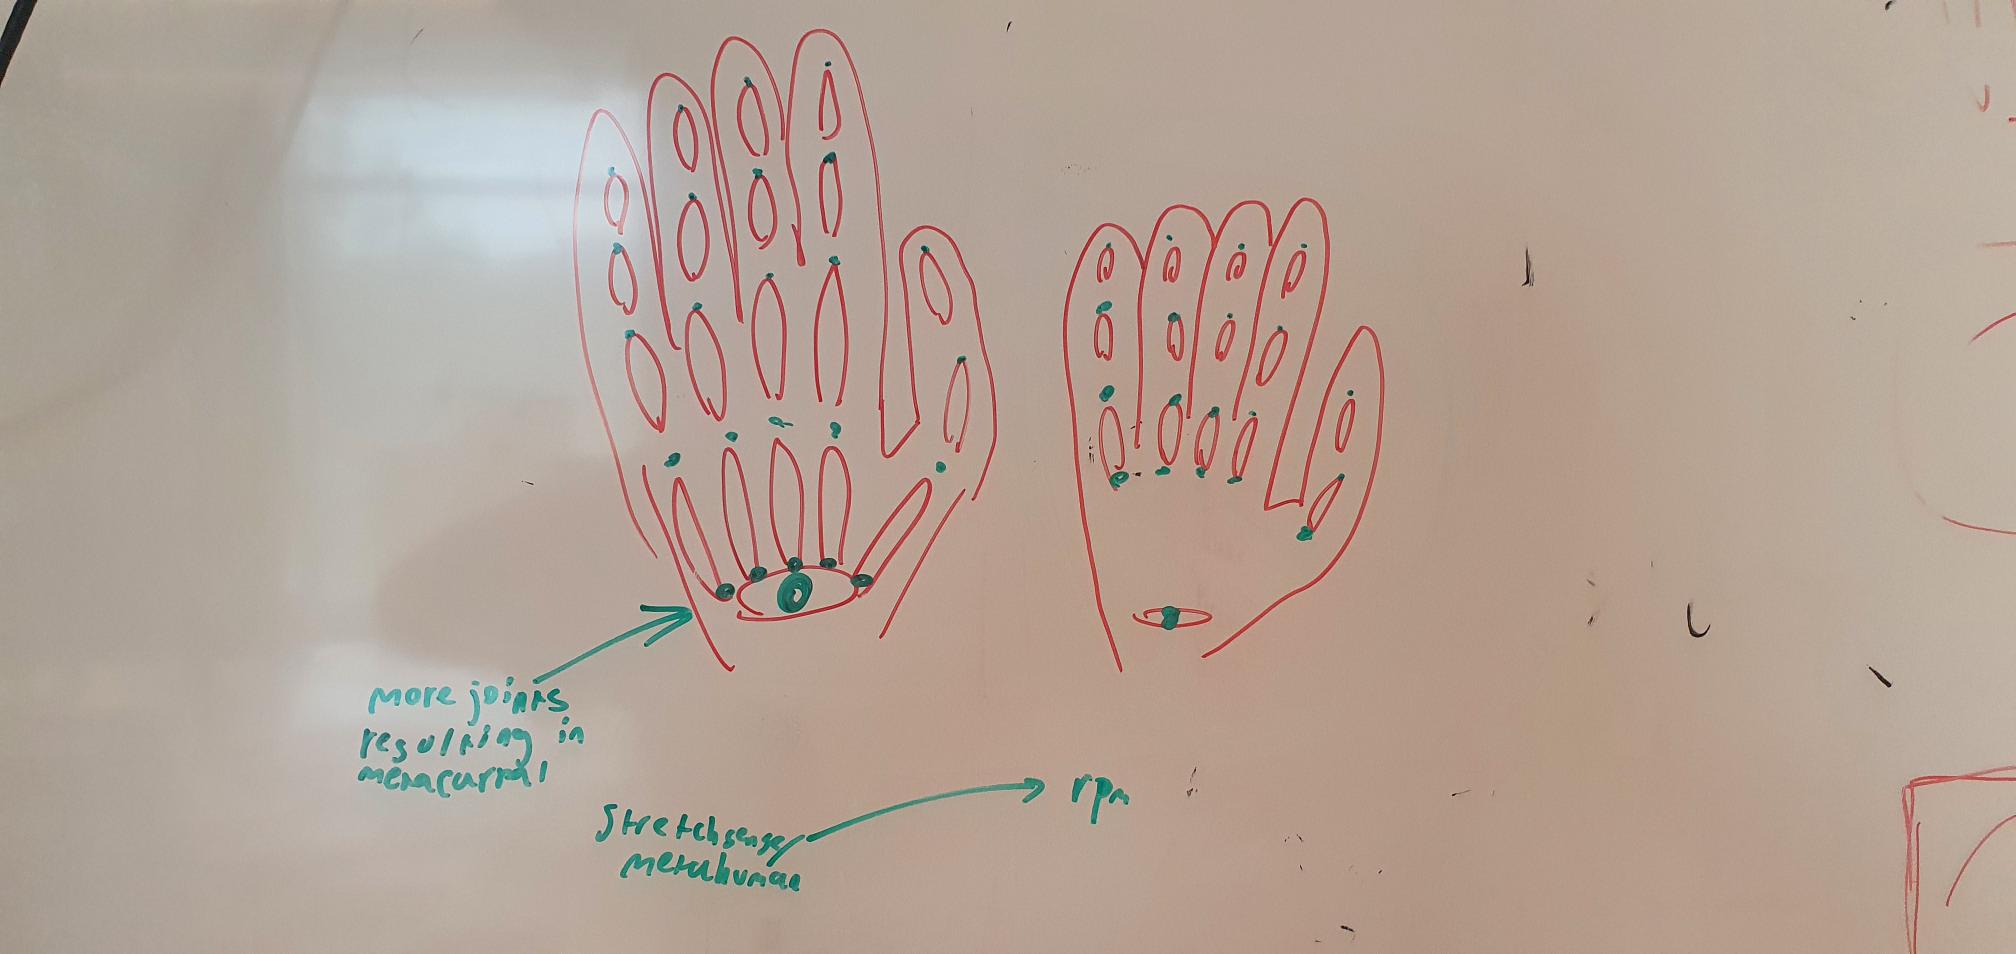 more joints
resulting in
metacarpal
Stretchsense/
metahuman
rpm